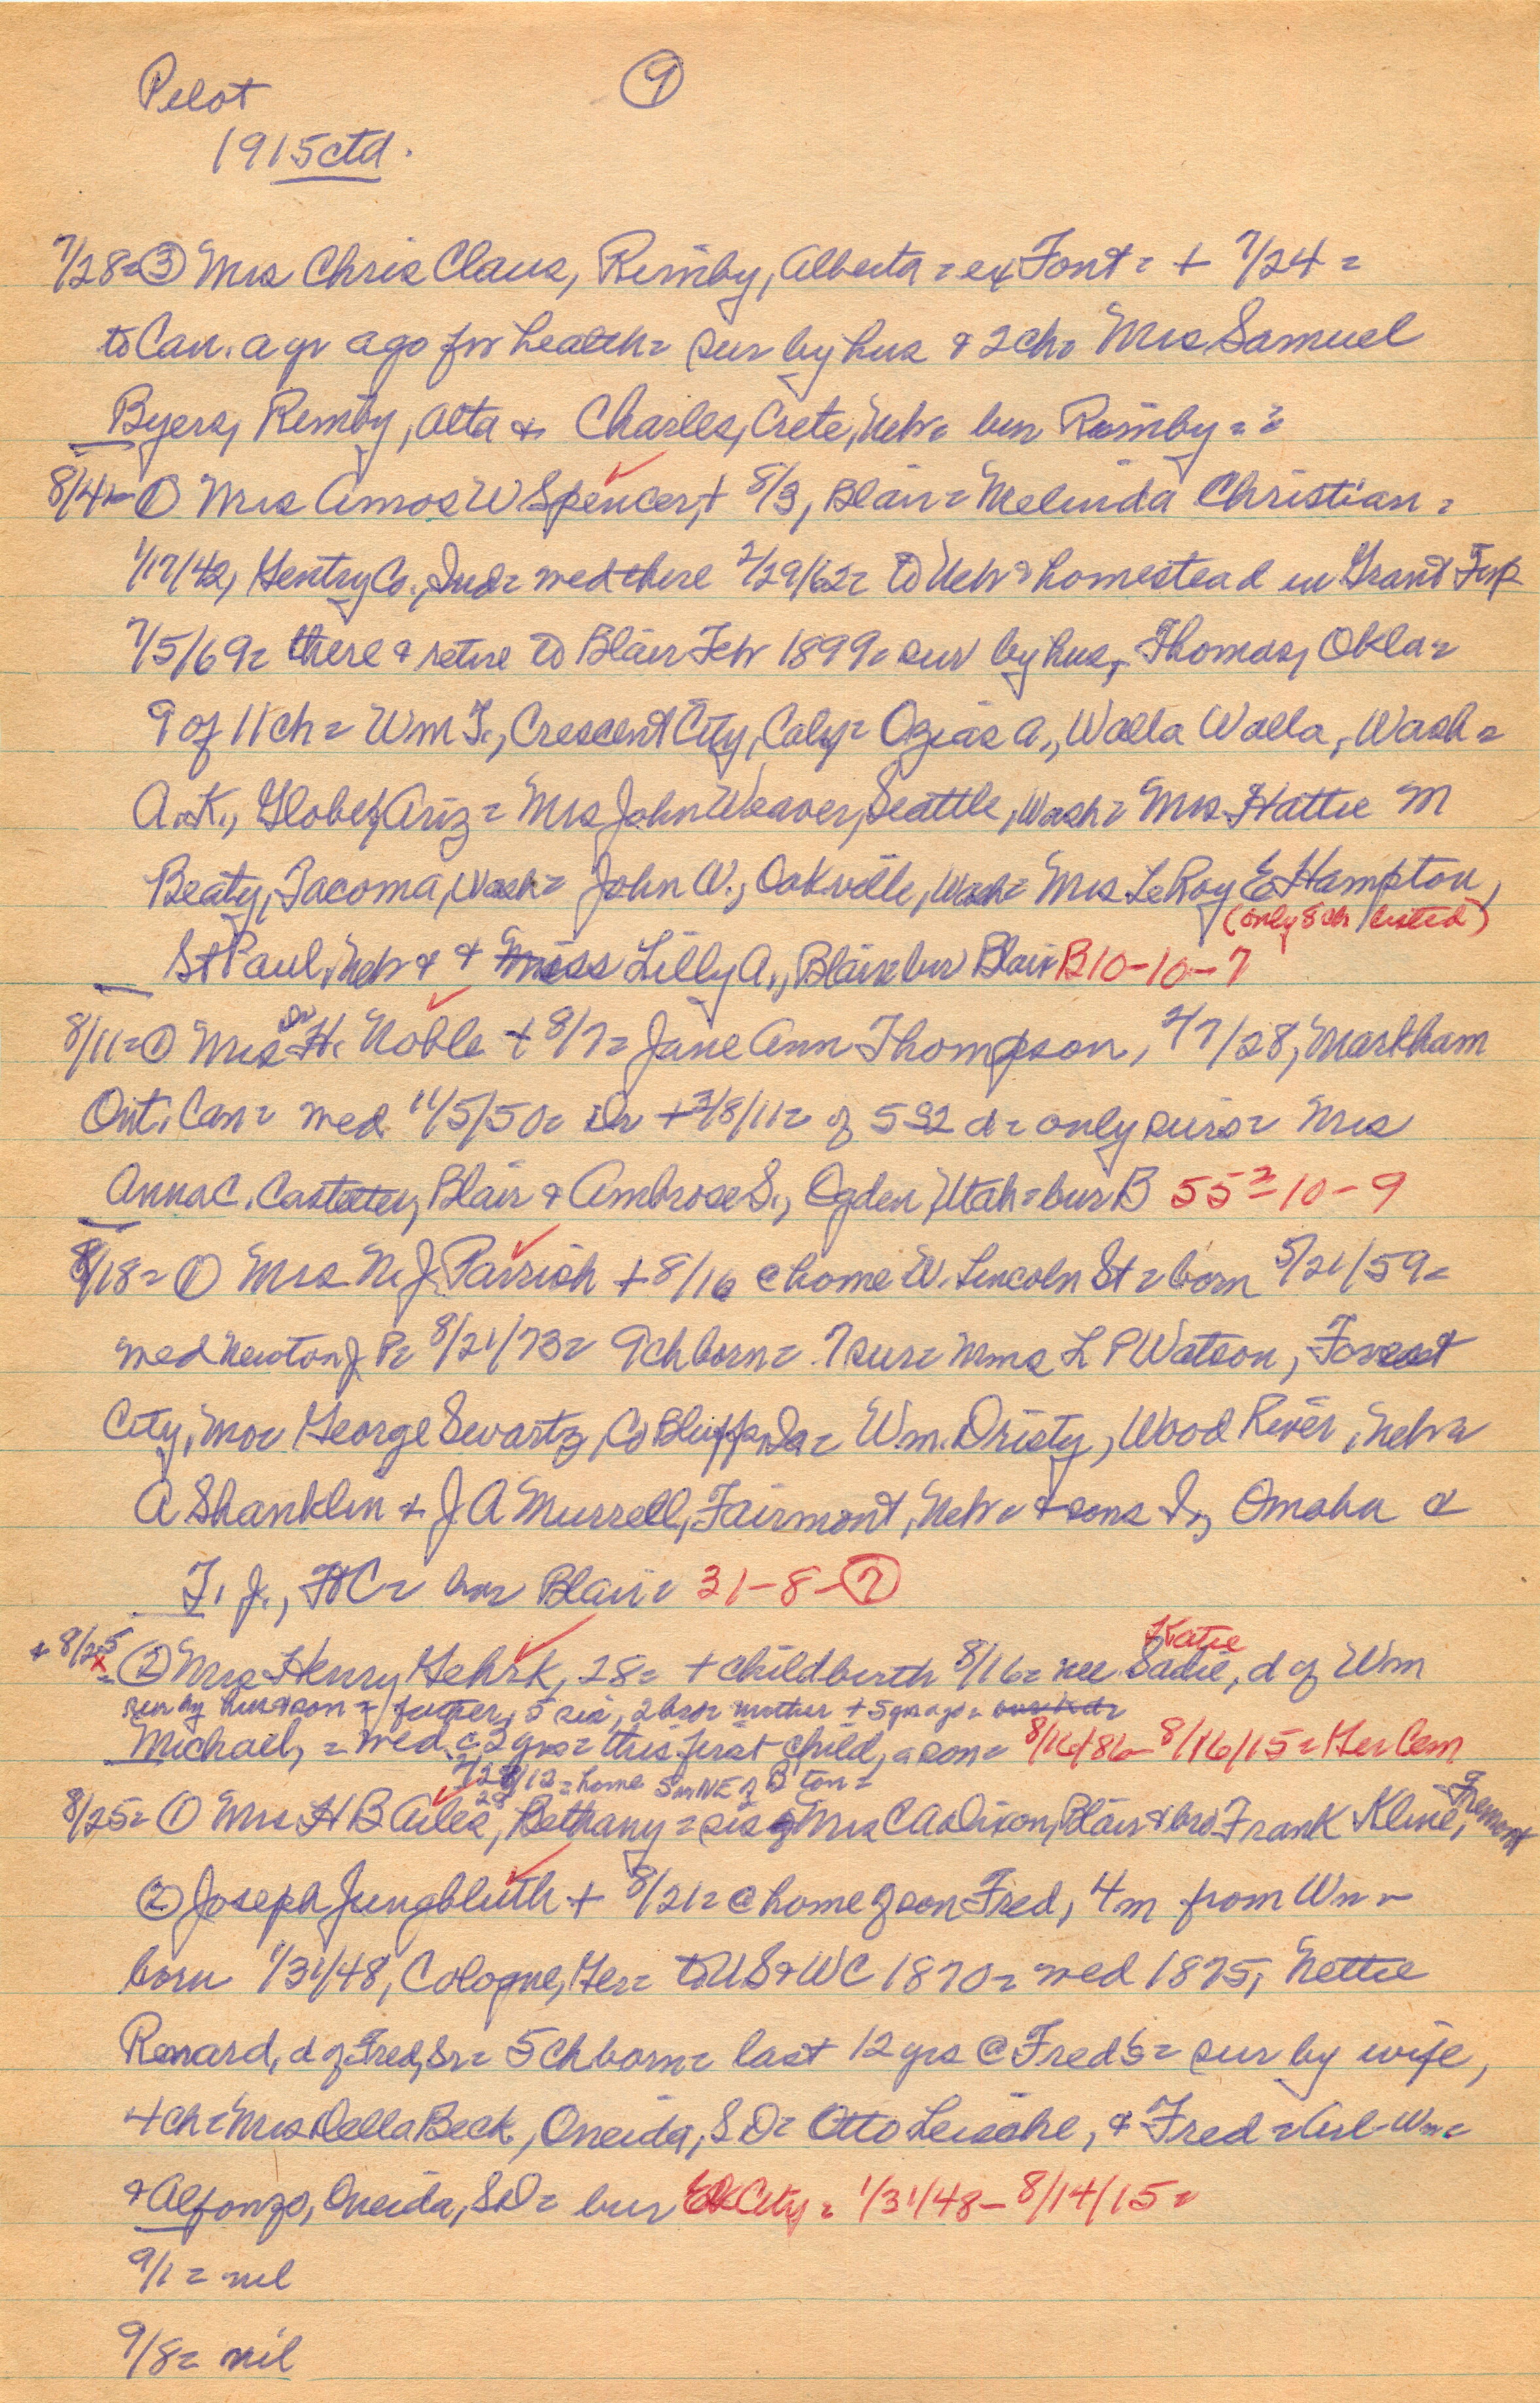 Pilot ⑨
1915 ctd.
7/28=③ Mrs Chris Claus, Rimby, Alberta = ex Font = + 7/24 =
to Can. a yr ago for health= sur by hus & 2 ch= Mrs Samuel
Byers, Rimby, Alta & Charles, Crete, Neb= bur Rimby ==
8/4=① Mrs Amos W Spencer, + 8/3, Blair = Melinda Christian =
1/17/42, Gentry Co., Ind= med there 2/29/62= to Neb & homestead in Grant Twp
7/5/69= there & retire to Blair Feb 1899= sur by hus, Thomas, Okla=
9 of 11 ch = Wm T., Crescent City, Calif= Ozias A., Walla Walla, Wash=
A.K., Globe, Ariz = Mrs John Weaver, Seattle, Wash= Mrs Hattie M
Beaty, Tacoma, Wash= John W., Oakville, Wash= Mrs LeRoy E Hampton,
(only 8 ch listed)
St Paul, Neb & & Miss Lilly A., Blair= bur Blair B10-10-7
8/11=① Mrs Dr H. Noble + 8/7= Jane Ann Thompson, 4/7/28, Markham
Ont, Can= med 11/5/50= Dr + 3/8/11= of 5 S 2 d= only surs= Mrs
Anna C. Castetter, Blair & Ambrose S., Ogden, Utah= bur B 55 2= 10-9
8/18=① Mrs N.J. Parrish + 8/16 @ home W. Lincoln St = born 5/21/59=
med Newton J P= 8/21/73= 9 ch born= 7 sur= Mms L P Watson, Forest
City, Mo= George Swartz, Co Bluffs, Ia= Wm. Dristy, Wood River, Neb=
A Shanklin & J A Murrell, Fairmont, Neb= & sons I., Omaha &
T. J., HC= bur Blair= 31-8-⑦
+ 8/25 = ② Mrs Henry Gehrk, 28= + childbirth 8/16= nee Sadie, Katie d of Wm
sur by hus & son = father, 5 sis, 2 bro= mother + 5 yrs ago=
Michael, = med c 3 yrs= this first child, a son= 8/16/86-8/16/15= Ger Cem
7/28/12= home 5m NE of B ton=
8/25=① Mrs H B Ailes, Bethany = sis of Mrs C A Dixon, Blair & bro Frank Kline, Fremont
② Joseph Jungbluth + 8/21= @ home of son Fred, 4m from Wn=
born 1/31/48, Cologne, Ger= to US & WC 1870= med 1875, Nettie
Renard, d of Fred, Sr= 5 ch born= last 12 yrs @ Fred's= sur by wife,
4 ch= Mrs Della Beck, Oneida, SD= Otto Leische, & Fred = Arl-Wn=
& Alfonzo, Oneida, SD= bur Elk City= 1/31/48-8/14/15=
9/1= nil
9/8= nil